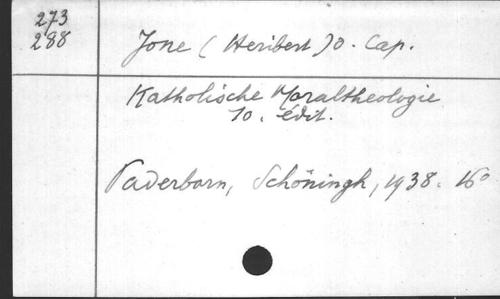 273
288
Jone (Heribert) O. Cap.
Katholische Moraltheologie
10. édit.
Paderborn, Schöningh, 1938. 16°